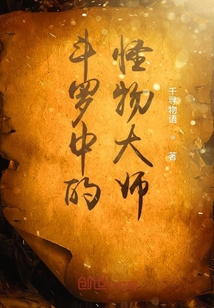 斗罗中的
怪物大师
千寻物语
著
创世